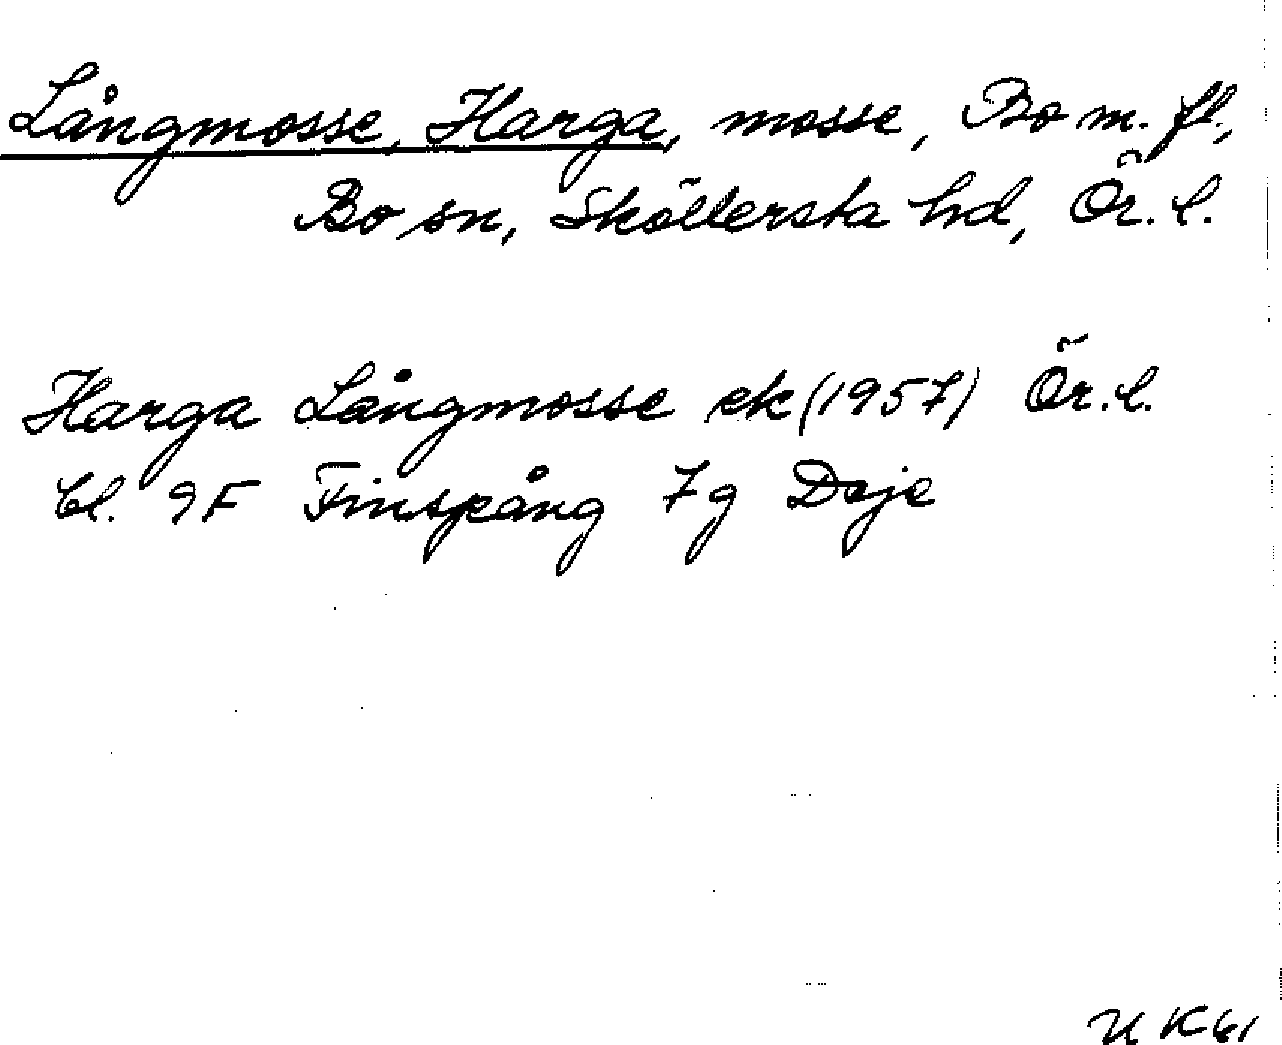 Långmosse, Harga, mosse, Bo m. fl.,
Bo sn, Sköllersta hd, Ör. l.
Harga Långmosse ek (1957) Ör. l.
bl. 9F Finspång 7g Deje